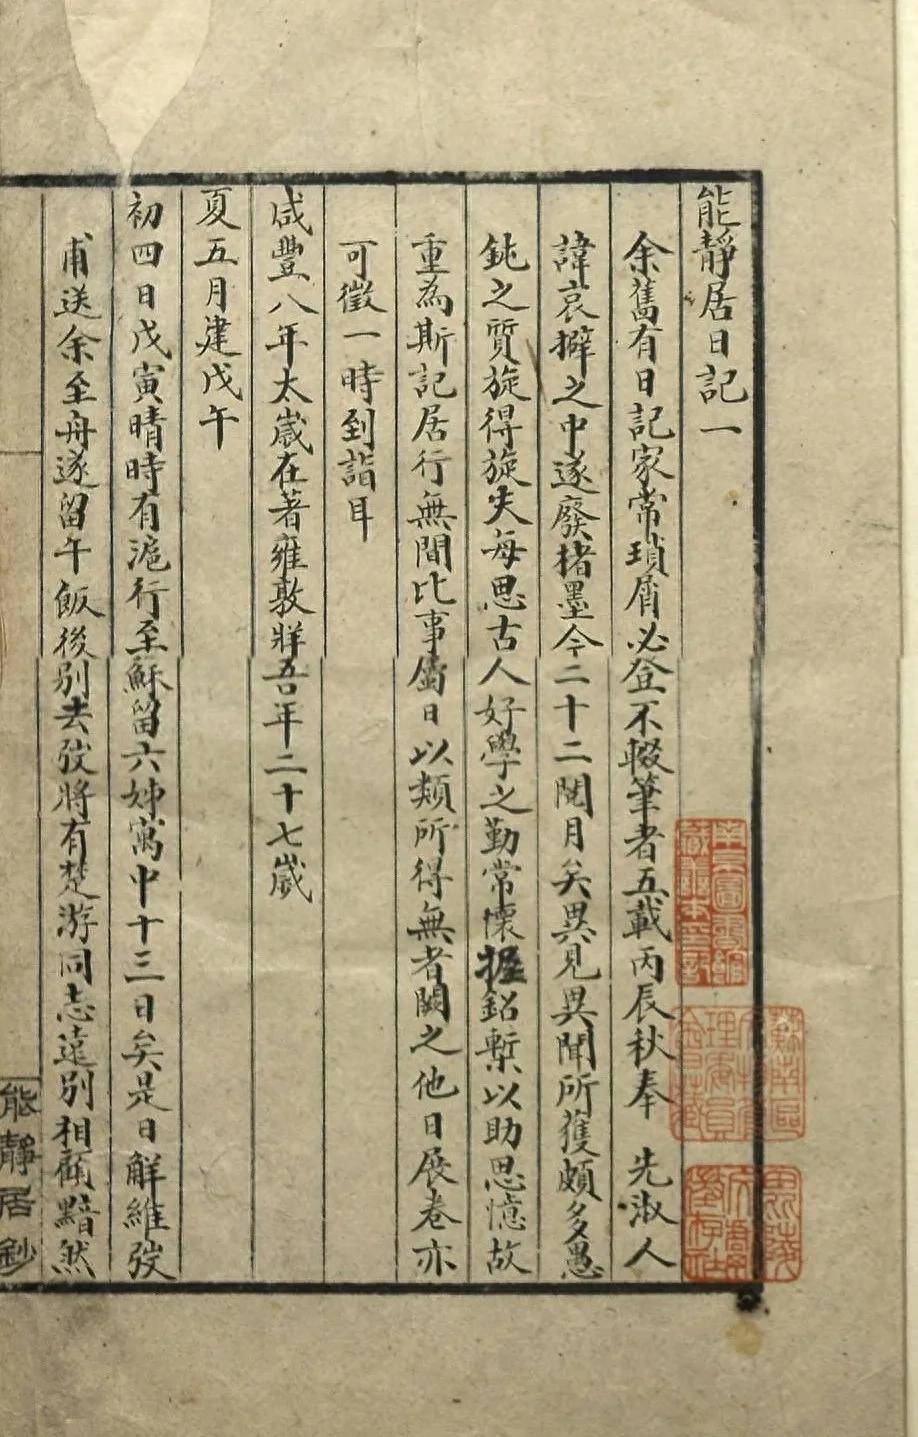 能靜居日記一
余舊有日記家常瑣屑必登不輟筆者五載丙辰秋奉 先淑人
諱哀擗之中遂廢楮墨今二十二閱月矣異見異聞所獲頗多愚
鈍之質旋得旋失每思古人好學之勤常懷握鉛槧以助思憶故
重為斯記居行無間比事屬日以類所得無者闕之他日展卷亦
可徵一時到詣耳
咸豐八年太歲在著雍敦牂吾年二十七歲
夏五月建戊午
初四日戊寅晴時有滬行至蘇留六姊寓中十三日矣是日解維弢
甫送余至舟遂留午飯後別去弢將有楚游同志遠別相顧黯然
能靜居鈔